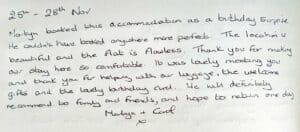 25th - 28th Nov
Martyn booked this accommodation as a birthday surprise
He couldn't have booked anywhere more perfect. The location is
beautiful and the flat is flawless. Thank you for making
our stay here so comfortable. It was lovely meeting you
and thank you for helping with our luggage, the welcome
gifts and the lovely birthday card. We will definitely
recommend to family and friends, and hope to return one day
Martyn +
x